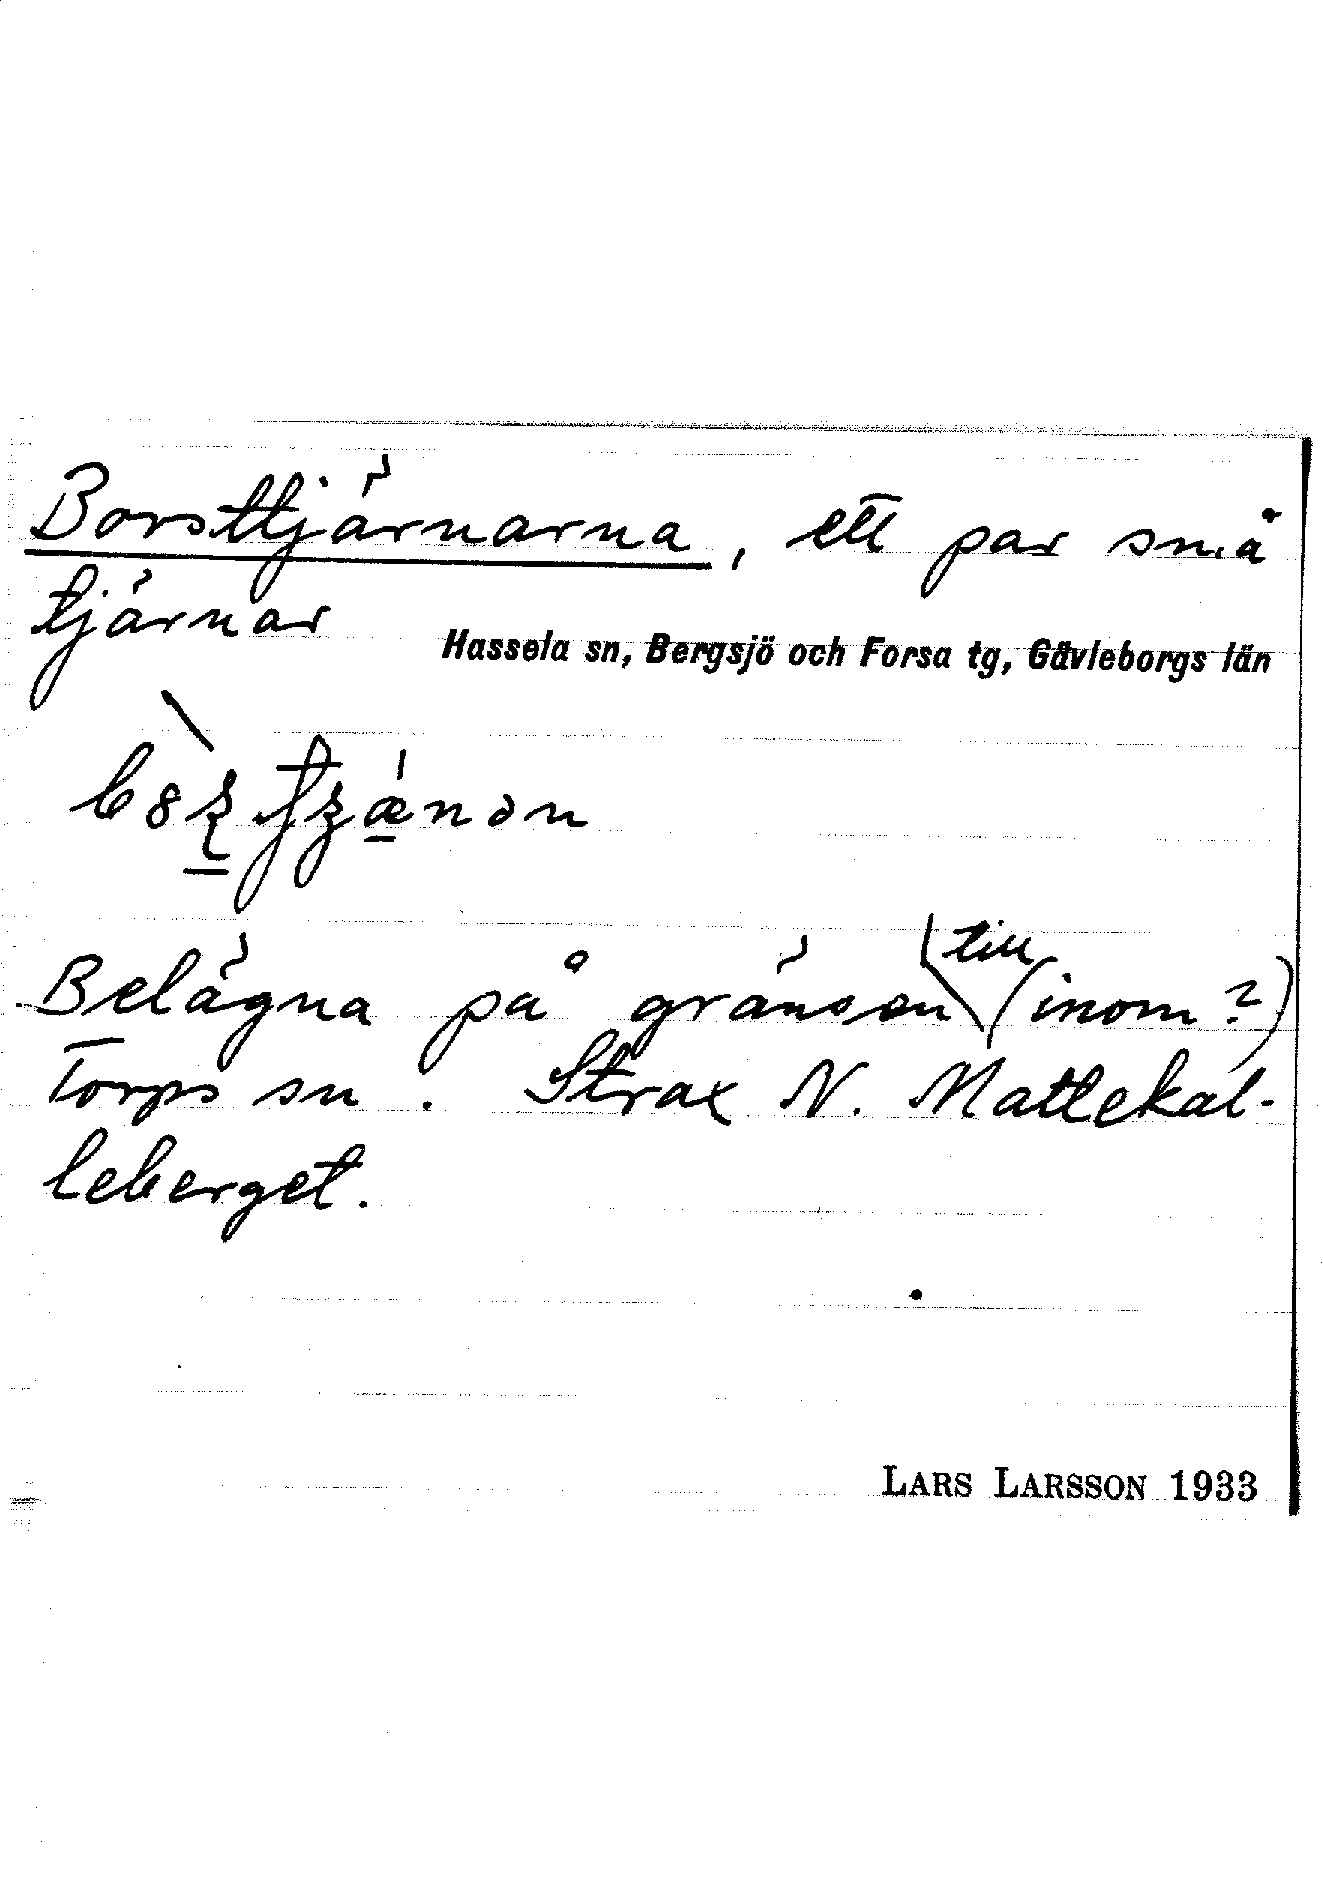 Borsttjärnarna, ett par små
tjärnar
Hassela sn, Bergsjö och Forsa tg, Gävleborgs län
Belägna på gränsen till (inom?)
Torps sn. Strax N. Mattekal-
leberget.
LARS LARSSON 1933